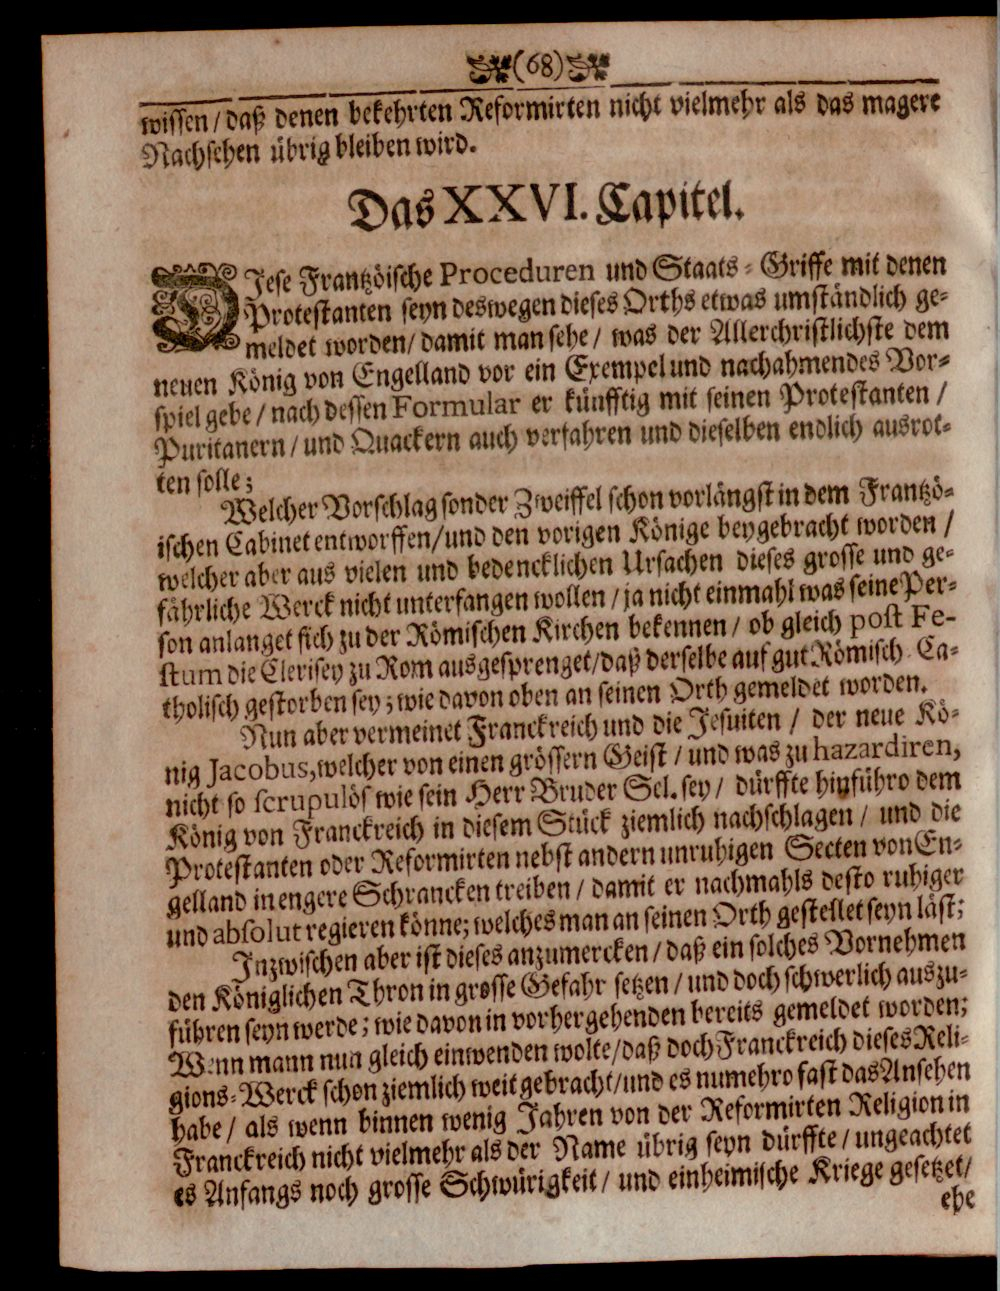 (68)
wissen / daß denen bekehrten Reformirten nicht vielmehr als das magere
Nachsehen übrig bleiben wird.
Das XXVI. Capitel.
DIese Frantzöische Proceduren und Staats-Griffe mit denen
Protestanten seyn deswegen dieses Orths etwas umständlich ge-
meldet worden / damit man sehe / was der Allerchristlichste dem
neuen König von Engelland vor ein Exempel und nachahmendes Vor-
spiel gebe / nach dessen Formular er künfftig mit seinen Protestanten /
Puritanern / und Quackern auch verfahren und dieselben endlich ausrot-
ten solle;
Welcher Vorschlag sonder Zweiffel schon vorlängst in dem Frantzö-
ischen Cabinet entworffen / und den vorigen Könige beygebracht worden /
welcher aber aus vielen und bedencklichen Ursachen dieses grosse und ge-
fährliche Werck nicht unterfangen wollen / ja nicht einmahl was seine Per-
son anlanget sich zu der Römischen Kirchen bekennen / ob gleich post Fe-
stum die Clerisey zu Rom ausgesprenget / daß derselbe auf gut Römisch Ca-
tholisch gestorben sey; wie davon oben an seinen Orth gemeldet worden.
Nun aber vermeinet Franckreich und die Jesuiten / der neue Kö-
nig Jacobus, welcher von einen grössern Geist / und was zu hazardiren,
nicht so scrupulös wie sein Herr Bruder Sel. sey / dürffte hinführo dem
König von Franckreich in diesem Stück ziemlich nachschlagen / und die
Protestanten oder Reformirten nebst andern unruhigen Secten von En-
gelland in engere Schrancken treiben / damit er nachmahls desto ruhiger
und absolut regieren könne; welches man an seinen Orth gestellet seyn läst;
Inzwischen aber ist dieses anzumercken / daß ein solches Vornehmen
den Königlichen Thron in grosse Gefahr setzen / und doch schwerlich auszu-
führen seyn werde; wie davon in vorhergehenden bereits gemeldet worden;
Wenn mann nun gleich einwenden wolte / daß doch Franckreich dieses Reli-
gions-Werck schon ziemlich weit gebracht / und es numehro fast das Ansehen
habe / als wenn binnen wenig Jahren von der Reformirten Religion in
Franckreich nicht vielmehr als der Name übrig seyn dürffte / ungeachtet
es Anfangs noch grosse Schwürigkeit / und einheimische Kriege gesetzet /
ehe